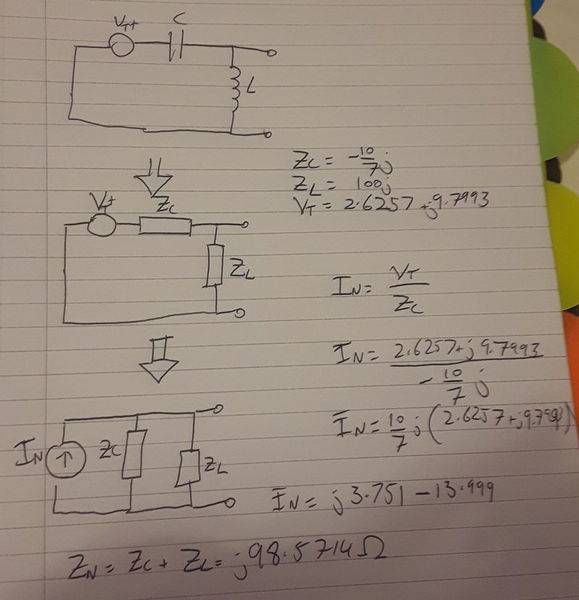 VT+ C
L
Zc = -10/7 j
ZL = 100j
VT = 2.6257 + j9.7993
VT Zc
ZL
IN = VT / Zc
IN = 2.6257 + j9.7993 / -10/7 j
IN = 10/7 j (2.6257 + j9.799)
IN Zc ZL
IN = j3.751 - 13.999
ZN = Zc + ZL = j98.5714Ω